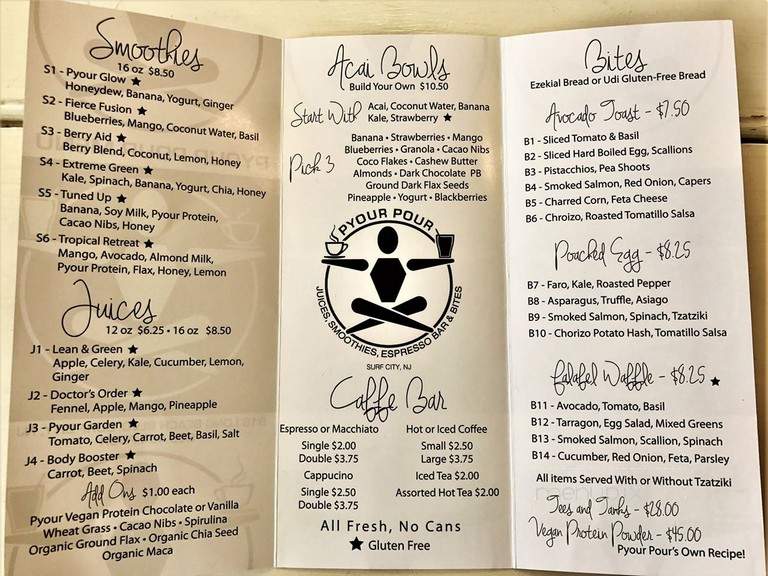 Smoothies
16 oz $8.50
S1 - Pyour Glow ★
Honeydew, Banana, Yogurt, Ginger
S2 - Fierce Fusion ★
Blueberries, Mango, Coconut Water, Basil
S3 - Berry Aid ★
Berry Blend, Coconut, Lemon, Honey
S4 - Extreme Green ★
Kale, Spinach, Banana, Yogurt, Chia, Honey
S5 - Tuned Up ★
Banana, Soy Milk, Pyour Protein,
Cacao Nibs, Honey
S6 - Tropical Retreat ★
Mango, Avocado, Almond Milk,
Pyour Protein, Flax, Honey, Lemon
Juices
12 oz $6.25 • 16 oz $8.50
J1 - Lean & Green ★
Apple, Celery, Kale, Cucumber, Lemon,
Ginger
J2 - Doctor's Order ★
Fennel, Apple, Mango, Pineapple
J3 - Pyour Garden ★
Tomato, Celery, Carrot, Beet, Basil, Salt
J4 - Body Booster ★
Carrot, Beet, Spinach
Add Ons $1.00 each
Pyour Vegan Protein Chocolate or Vanilla
Wheat Grass • Cacao Nibs • Spirulina
Organic Ground Flax • Organic Chia Seed
Organic Maca
Acai Bowls
Build Your Own $10.50
Start With Acai, Coconut Water, Banana
Kale, Strawberry ★
Pick 3
Banana • Strawberries • Mango
Blueberries • Granola • Cacao Nibs
Coco Flakes • Cashew Butter
Almonds • Dark Chocolate PB
Ground Dark Flax Seeds
Pineapple • Yogurt • Blackberries
PYOUR POUR
JUICES, SMOOTHIES, ESPRESSO BAR & BITES
SURF CITY, NJ
Caffe Bar
Espresso or Macchiato
Single $2.00
Double $3.75
Cappucino
Single $2.50
Double $3.75
Hot or Iced Coffee
Small $2.50
Large $3.75
Iced Tea $2.00
Assorted Hot Tea $2.00
All Fresh, No Cans
★ Gluten Free
Bites
Ezekial Bread or Udi Gluten-Free Bread
Avocado Toast - $7.50
B1 - Sliced Tomato & Basil
B2 - Sliced Hard Boiled Egg, Scallions
B3 - Pistacchios, Pea Shoots
B4 - Smoked Salmon, Red Onion, Capers
B5 - Charred Corn, Feta Cheese
B6 - Chroizo, Roasted Tomatillo Salsa
Poached Egg - $8.25
B7 - Faro, Kale, Roasted Pepper
B8 - Asparagus, Truffle, Asiago
B9 - Smoked Salmon, Spinach, Tzatziki
B10 - Chorizo Potato Hash, Tomatillo Salsa
Falafel Waffle - $8.25 ★
B11 - Avocado, Tomato, Basil
B12 - Tarragon, Egg Salad, Mixed Greens
B13 - Smoked Salmon, Scallion, Spinach
B14 - Cucumber, Red Onion, Feta, Parsley
All items Served With or Without Tzatziki
Tees and Tanks - $28.00
Vegan Protein Powder - $45.00
Pyour Pour's Own Recipe!